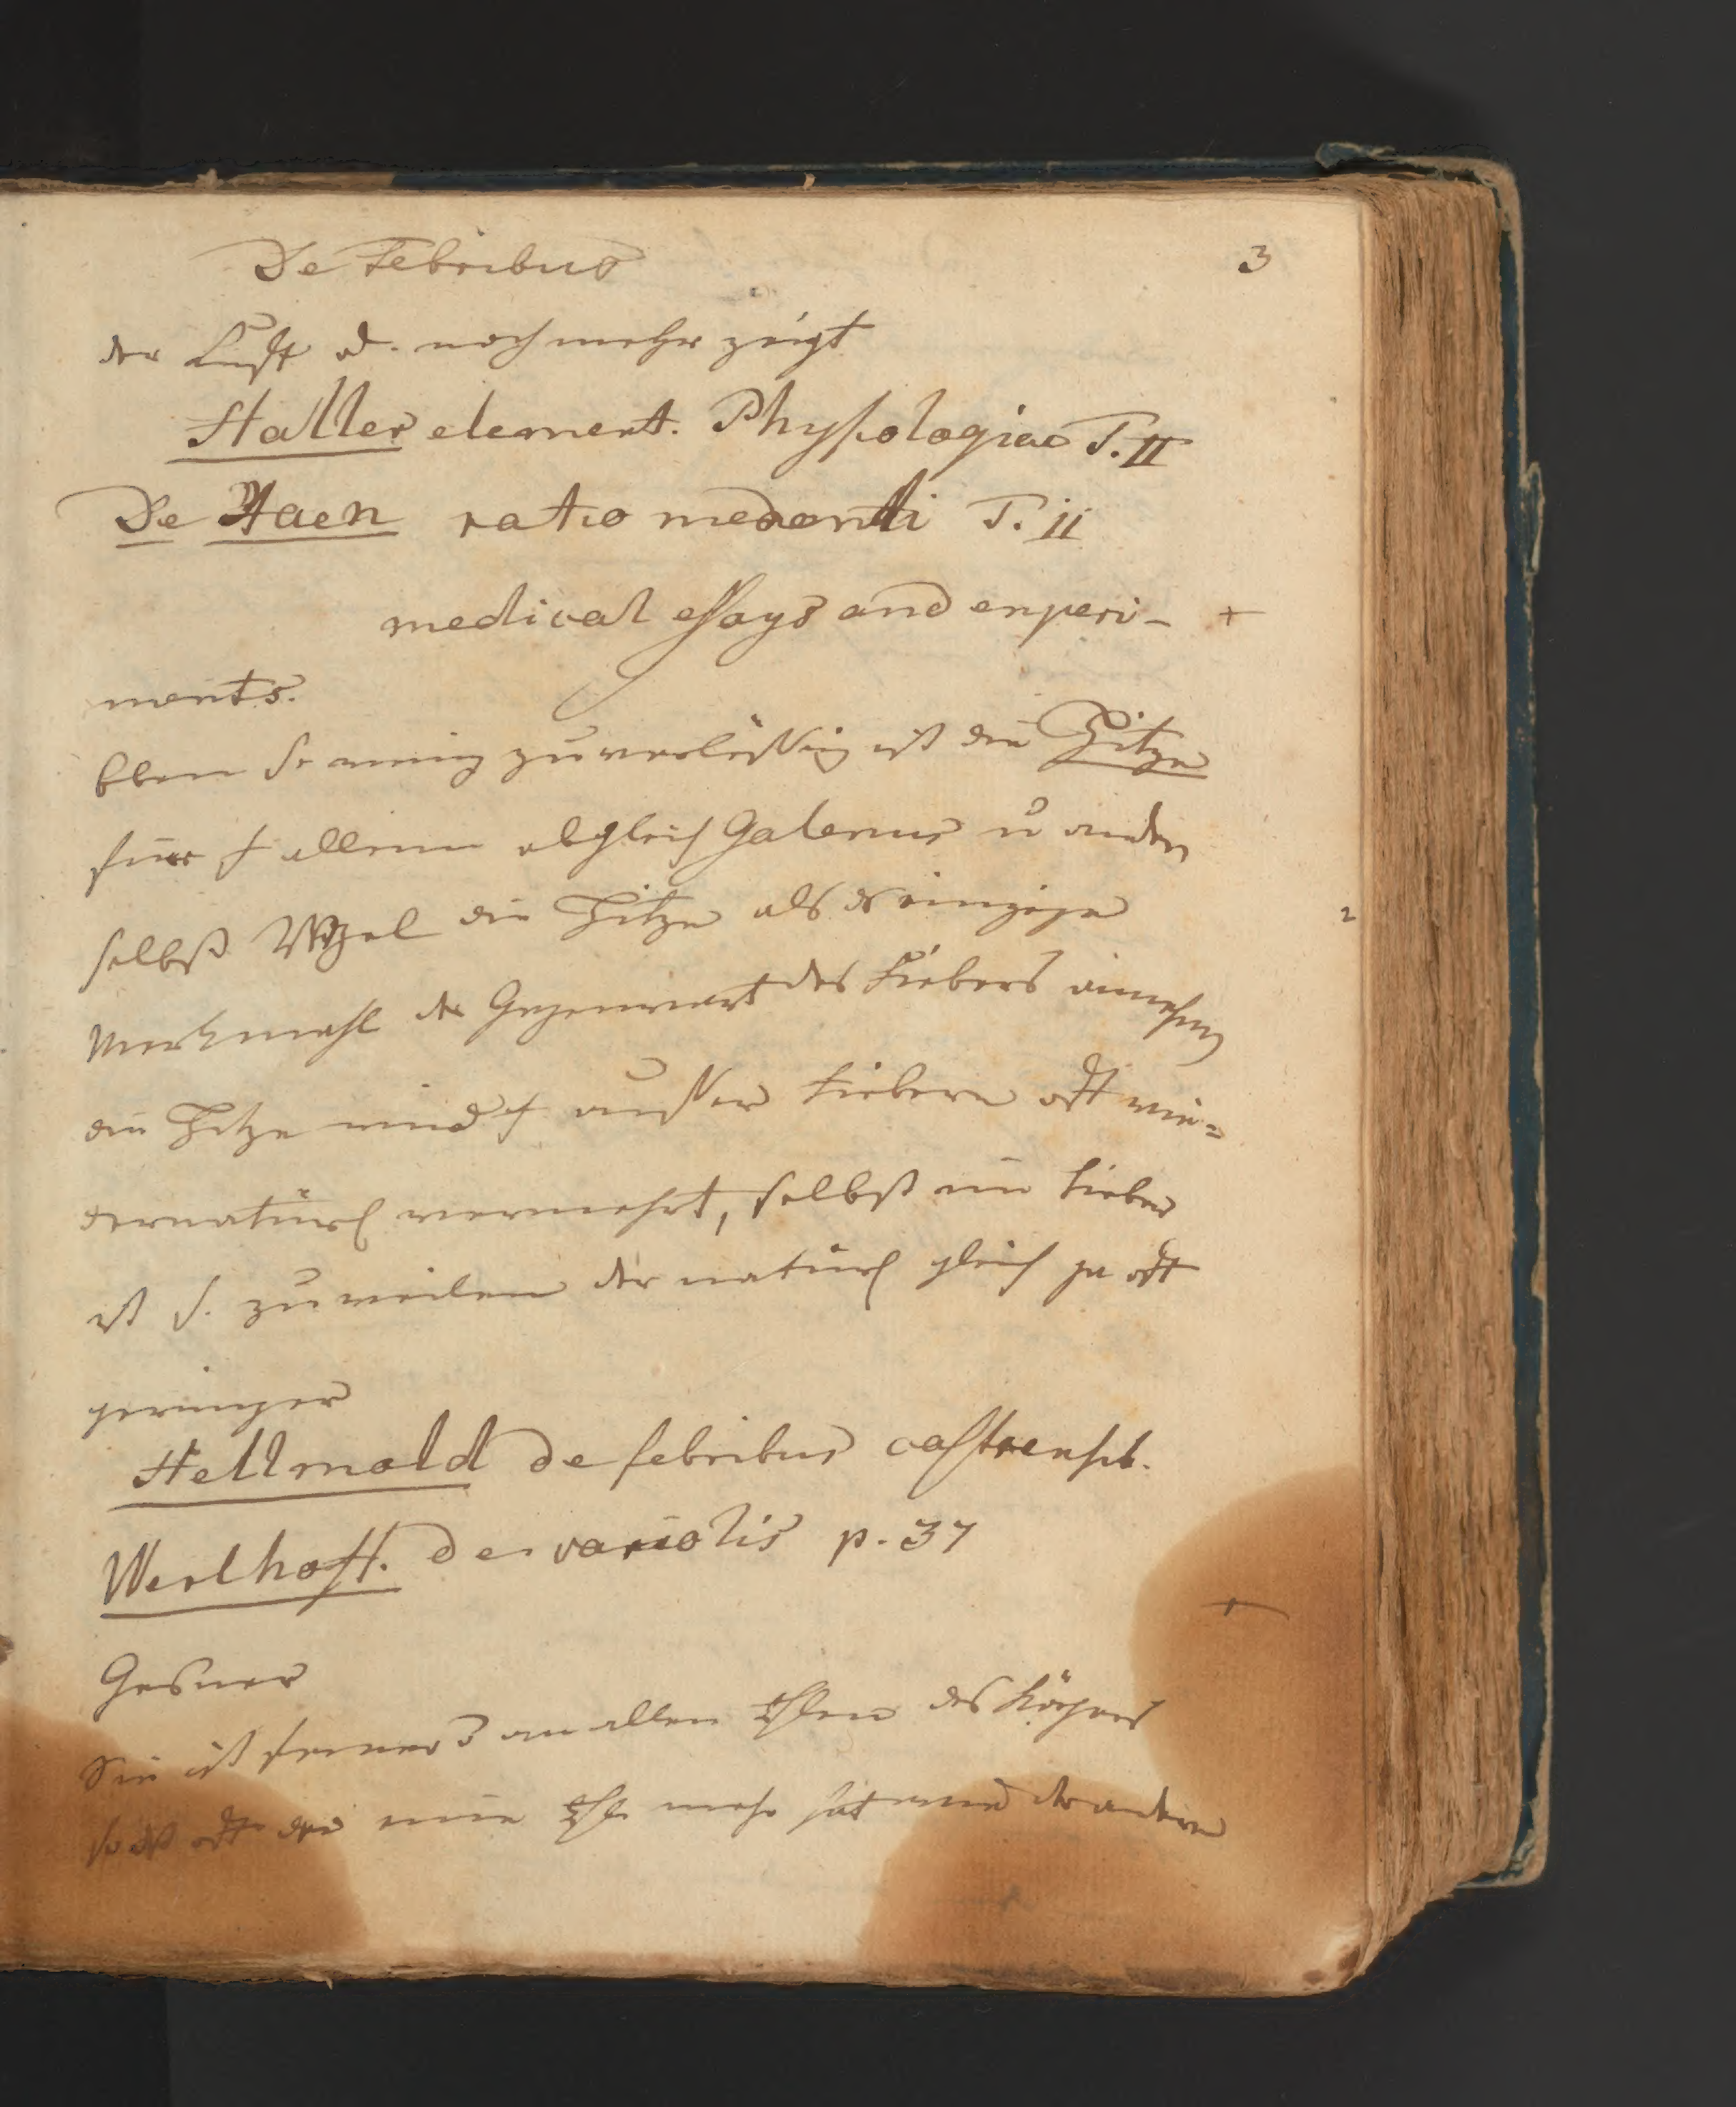 De Febribus 3
der Luft u. noch mehr zeigt
Haller element. Physiologiae T. II
De Haen ratio medendi T. II
medical essays and experi- +
ments.
Eben so wenig zuverlässig ist die Hitze
für allein obgleich Galenus u andere
selbst die Hitze als das einzige
Merkmahl der Gegenwart des Fiebers annehmen
die Hitze wird auser Fiebern oft wie=
dernatürl vermehrt, selbst im Fieber
ist s. zuweilen der natürl gleich ja oft
geringer
Hellmold de febribus castrensib.
Werlhoff. de variolis p. 37
Gesner
Sie ist ferner an allen Thlen des Körpers
so daß oft der eine Thl mehr hat der andere